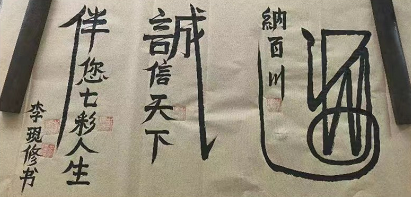 納百川
誠信天下
伴您七彩人生
李現修书